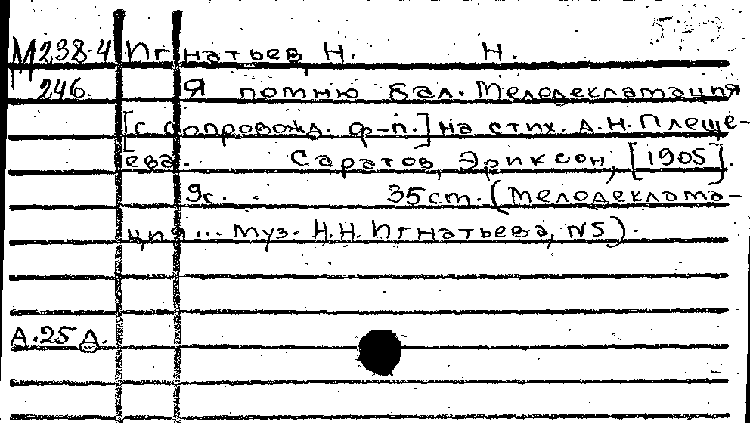 М238-4 Игнатьев, Н. Н.
246. Я помню бал. Мелодекламация
[с сопровожд. ф-п.] на стих. А.Н. Плеще-
ева. Саратов, Эриксон, [1905].
9с. 35 ст. (Мелодеклама-
ция... Муз. Н.Н. Игнатьева, N5).
А.25 Д.